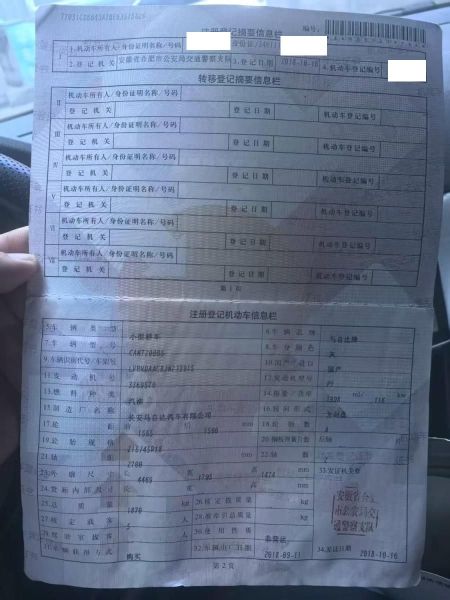 注册登记摘要信息栏
编号：
I 1.机动车所有人/身份证明名称/号码
2.登记机关 安徽省合肥市公安局交通警察支队 3.登记日期 2018-10-16 4.机动车登记编号
转移登记摘要信息栏
II 机动车所有人/身份证明名称/号码
登记机关 登记日期 机动车登记编号
III 机动车所有人/身份证明名称/号码
登记机关 登记日期 机动车登记编号
IV 机动车所有人/身份证明名称/号码
登记机关 登记日期 机动车登记编号
V 机动车所有人/身份证明名称/号码
登记机关 登记日期 机动车登记编号
VI 机动车所有人/身份证明名称/号码
登记机关 登记日期 机动车登记编号
VII 机动车所有人/身份证明名称/号码
登记机关 登记日期 机动车登记编号
第1页
注册登记机动车信息栏
5.车辆类型 小型轿车 6.车辆品牌 马自达牌
7.车辆型号 8.车身颜色 灰
9.车辆识别代号/车架号 10.国产/进口 国产
11.发动机号 12.发动机型号
13.燃料种类 汽油 14.排量/功率 ml/ kW
15.制造厂名称 长安马自达汽车有限公司 16.转向形式
17.轮距 前 后 18.轮胎数 4
19.轮胎规格 20.钢板弹簧片数 后轴
21.轴距 2700 22.轴数 2
23.外廓尺寸 长 4465 宽 1795 高 33.发证机关章
24.货厢内部尺寸 长 宽 高
25.总质量 kg 26.核定载质量 kg
27.核定载客 5 人 28.准牵引总质量 kg
29.驾驶室载客 人 30.使用性质 非营运
31.车辆获得方式 购买 32.车辆出厂日期 2018-09-11 34.发证日期 2018-10-16
安徽省合肥
市公安局交
通警察支队
第2页